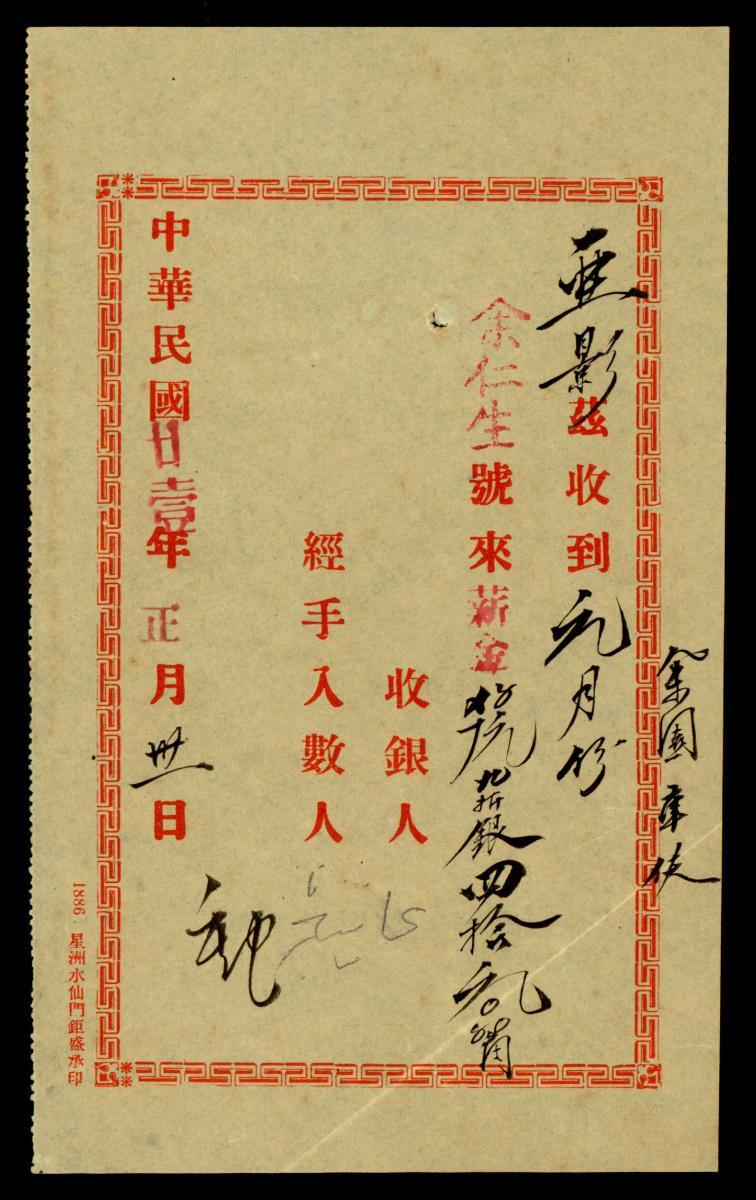 余園車伕
亞影茲收到元月份
余仁生號來薪金 九折銀四拾元
收銀人
經手入數人
中華民國廿壹年正月卅一日
1886. 星洲水仙門鉅盛承印